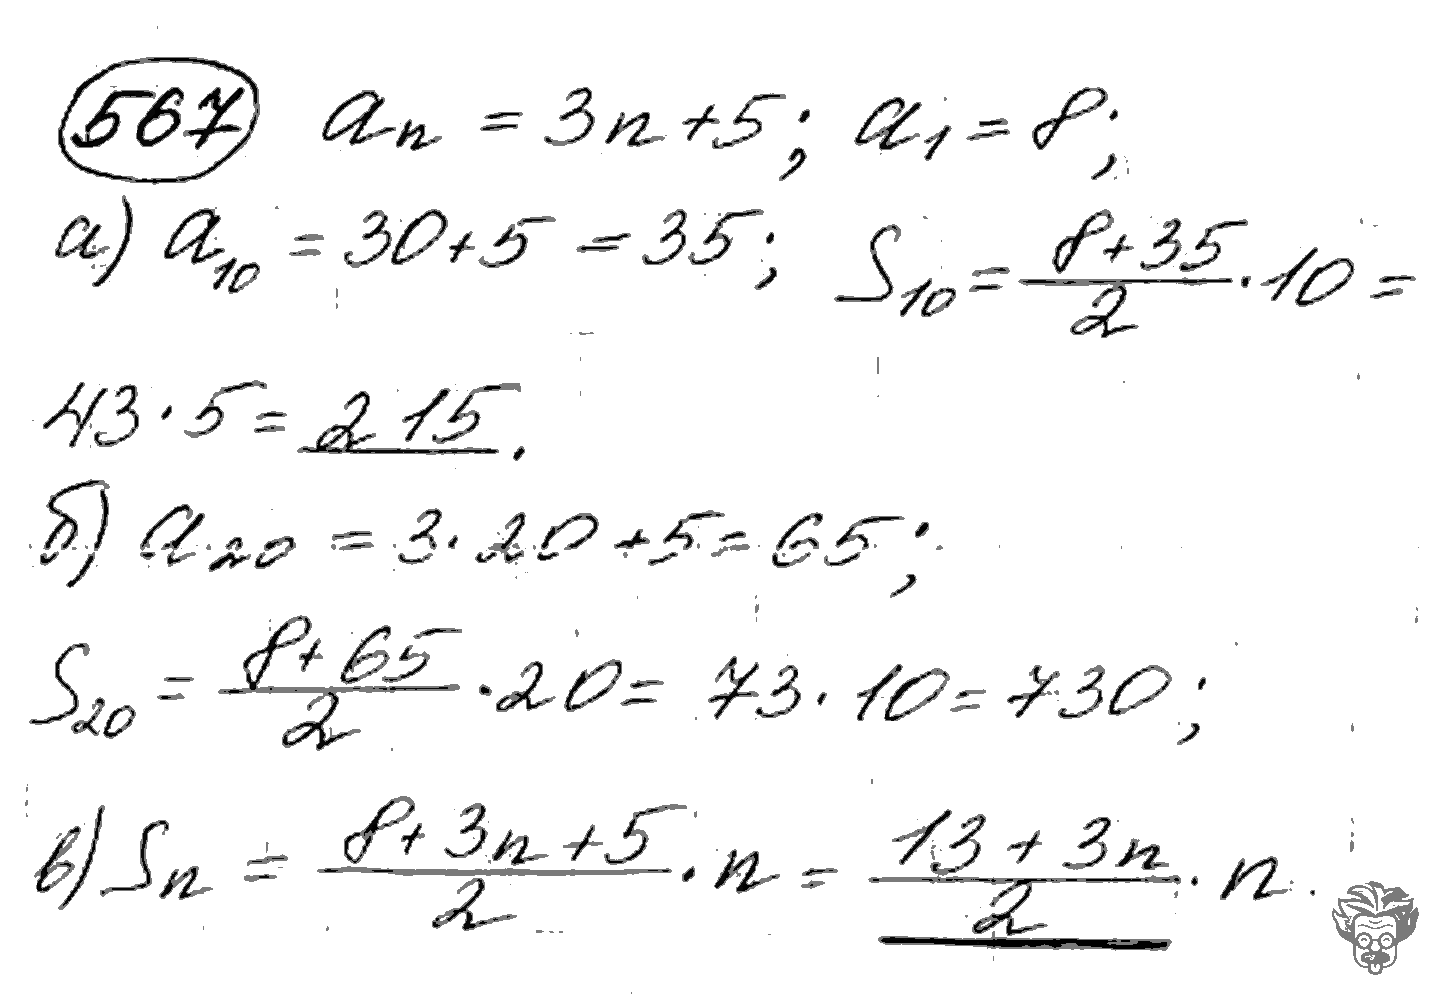 567 aₙ = 3n + 5; a₁ = 8;
а) a₁₀ = 30 + 5 = 35; S₁₀ = (8 + 35)/2 · 10 =
43 · 5 = 215.
б) a₂₀ = 3 · 20 + 5 = 65;
S₂₀ = (8 + 65)/2 · 20 = 73 · 10 = 730;
в) Sₙ = (8 + 3n + 5)/2 · n = (13 + 3n)/2 · n.